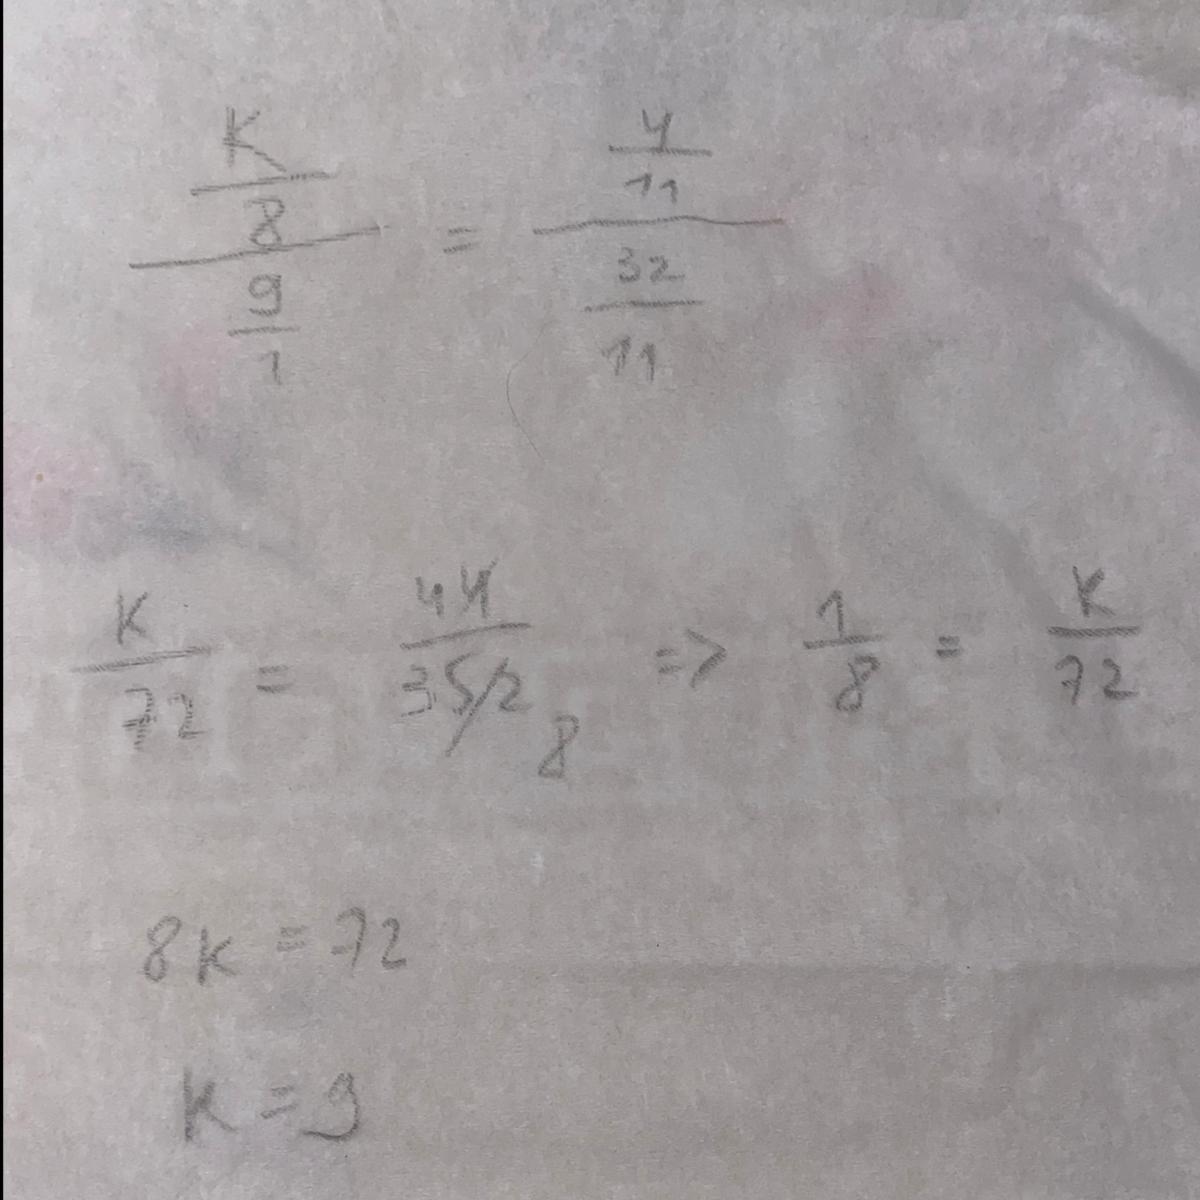 K/8 / 9/1 = 4/11 / 32/11
K/72 = 44/352 8 => 1/8 = K/72
8K = 72
K = 9